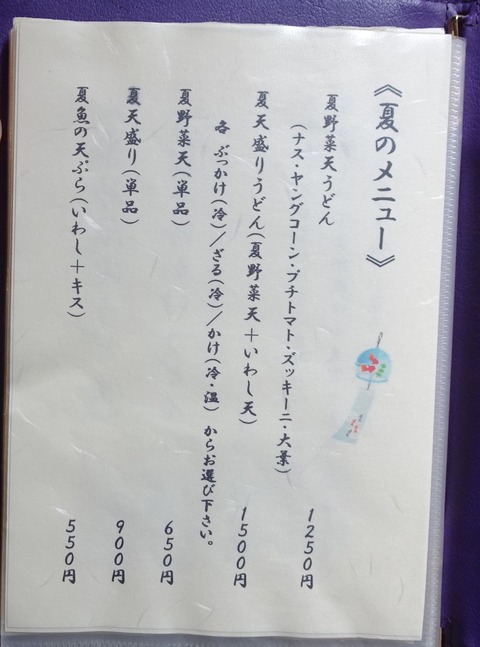 《夏のメニュー》
夏野菜天うどん 1250円
(ナス・ヤングコーン・プチトマト・ズッキーニ・大葉)
夏天盛りうどん(夏野菜天+いわし天) 1500円
各 ぶっかけ(冷)/ざる(冷)/かけ(冷・温) からお選び下さい。
夏野菜天(単品) 650円
夏天盛り(単品) 900円
夏魚の天ぷら(いわし+キス) 550円